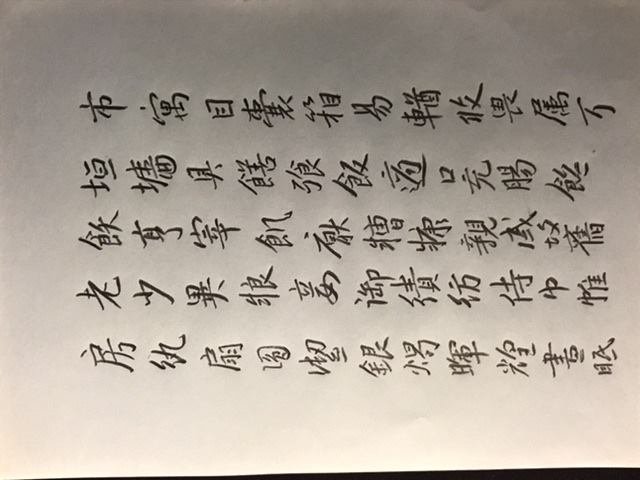 市寓目囊箱易輶攸畏属耳
垣墻具饍飡飯適口充腸飽
飫亨宰飢厭糟糠親戚故舊
老少異粮妾御績紡侍巾帷
房紈扇圓潔銀燭暐煌晝眠